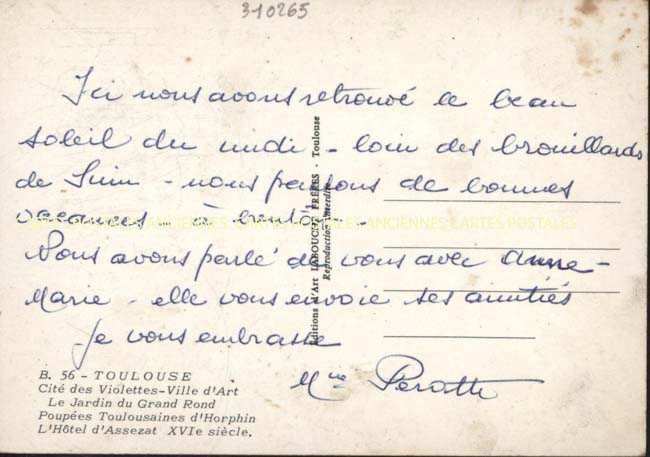 310265
Ici nous avons retrouvé le beau
soleil du midi - loin des brouillards
de - nous passons de bonnes
vacances - à bientôt -
Nous avons parlé de vous avec Anne-
Marie - elle vous envoie ses amitiés
Je vous embrasse
Mme
Editions d'Art LABOUCHE FRÈRES - Toulouse
Reproduction interdite
ANCIENNES CARTES POSTALES
B. 56 - TOULOUSE
Cité des Violettes-Ville d'Art
Le Jardin du Grand Rond
Poupées Toulousaines d'Horphin
L'Hôtel d'Assezat XVIe siècle.